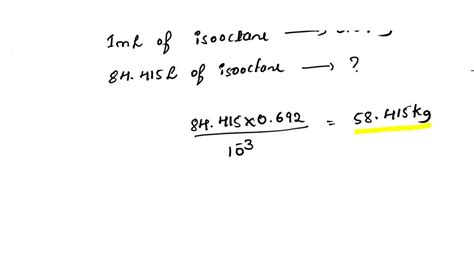 1mL of isooctane ⟶
84.415L of isooctane ⟶ ?
84.415×0.692
10⁻³
= 58.415kg